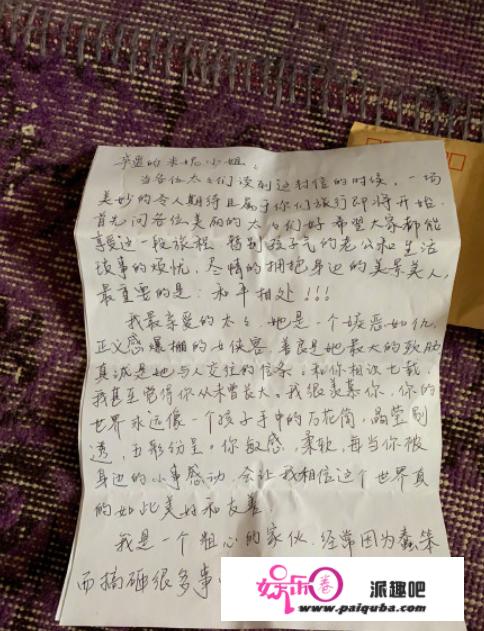 的米妮小姐、
当各位太太们读到这封信的时候,一场
美妙的令人期待且属于你们旅行即将开始.
首先问各位美丽的太太们好 希望大家都能
享受这一段旅程 暂别孩子气的老公和生活
琐事的烦忧、尽情的拥抱身边的美景美人,
最重要的是:和平相处!!!
我最亲爱的太太、她是一个嫉恶如仇,
正义感爆棚的女侠客、善良是她最大的软肋
真诚是她与人交往的信条、和你相识七载,
我甚至觉得你从未曾长大。我很羡慕你,你的
世界永远像一个孩子手中的万花筒,晶莹剔
透,五彩纷呈。你敏感,柔软,每当你被
身边的小事感动,会让我相信这个世界真
的如此美好和友善.
我是一个粗心的家伙、经常因为蠢笨
而搞砸很多事
娱乐圈 派趣吧
www.paiquba.com